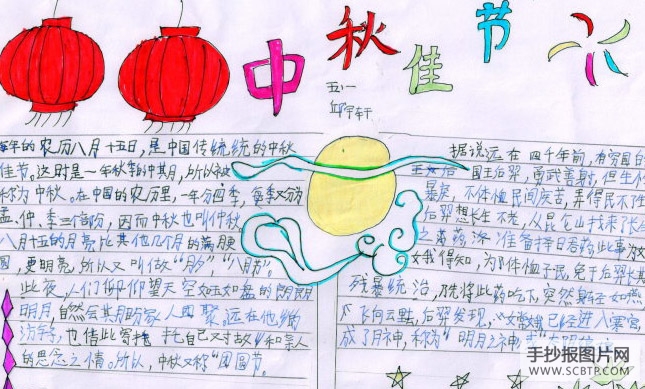 中秋佳节
五、一
邱宇轩
每年的农历八月十五日，是中国传统的中秋
佳节。这时是一年秋季的中其月，所以被
称为中秋。在中国的农历里，一年分四季，每季又分为
孟、仲、季三个部份，因而中秋也叫仲秋。
八月十五的月亮比其他几个月的满月更
圆，更明亮，所以又叫做“月夕”，“八月节”。
此夜，人们仰望天空如玉如盘的朗朗
明月，自然会其盼家人团聚。远在他乡的
游子，也借此寄托自己对故乡和亲人
的思念之情。所以，中秋又称“团圆节。
据说远在四千年前，有穷国的
国王后羿，勇武善射，但生性
暴戾，不体恤民间疾苦，弄得民不
后羿想长生不老，从昆仑山找来了长生
之药，准备择日吞药，此事为
女我得知，为了体恤子民，免于后羿长期
残暴统治，乃先将此药吃下，突然身轻如燕
飞向云端，后羿发现，嫦娥已经进入寒宫，
成了月神，称为“明月之神
手抄报图片网
WWW.SCBTP.COM